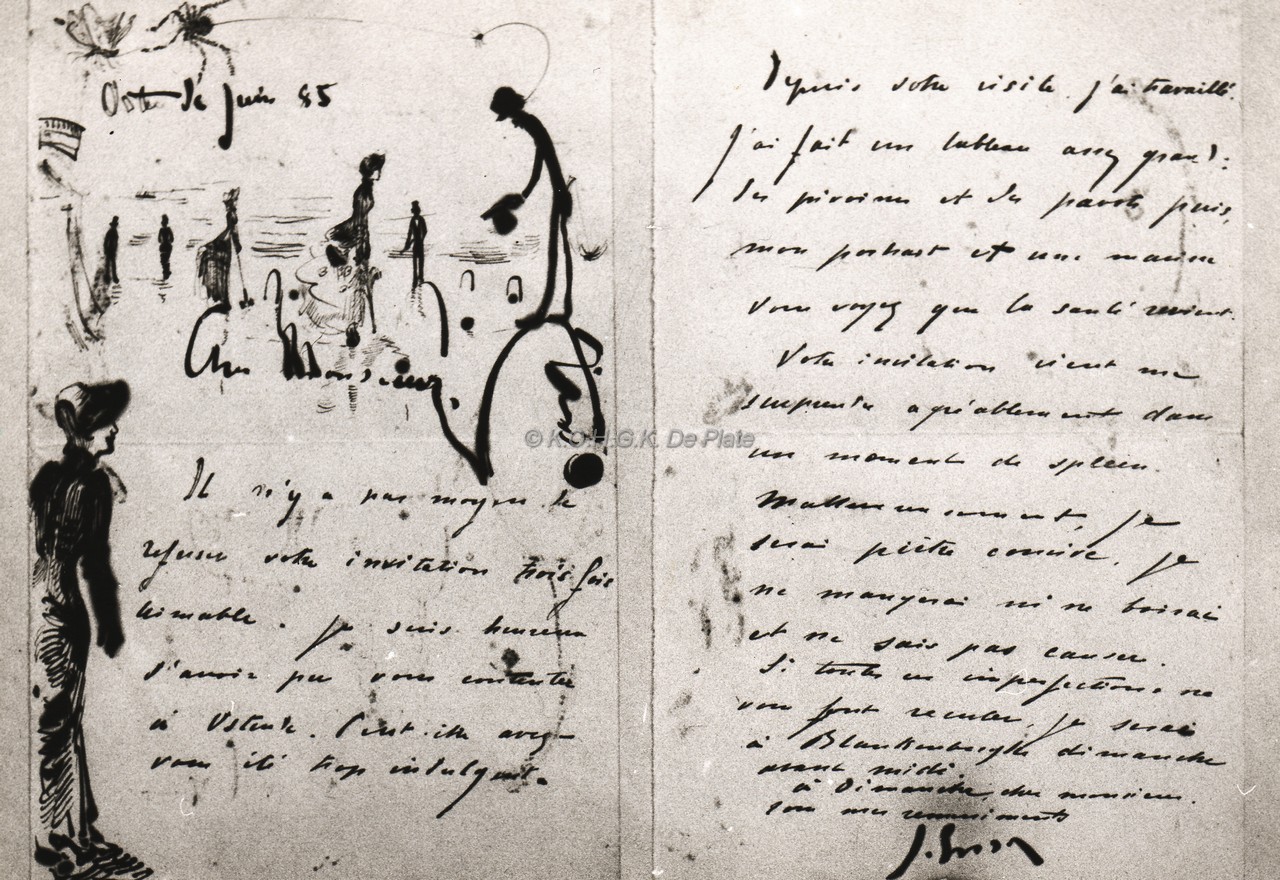 Ostende Juin 85
Cher Monsieur
Il n'y a pas moyen de
refuser votre invitation trois fois
aimable. Je suis heureux
d'avoir pu vous contenter
à Ostende. Peut être avez-
vous été trop indulgent.
Depuis votre visite j'ai travaillé.
J'ai fait un tableau assez grand:
des pivoines et des pavots puis,
mon portrait et une marine
vous voyez que la santé revient.
Votre invitation vient me
surprendre agréablement dans
un moment de spleen.
Malheureusement, je
serai piètre convive, je
ne mangerai ni ne boirai
et ne sais pas causer.
Si toutes ces imperfections ne
vous font reculer, je serai
à Blankenberghe dimanche
avant midi.
à Dimanche, cher monsieur.
tous mes remerciments
J. Ensor
© K.O.H.G.K. De Plate